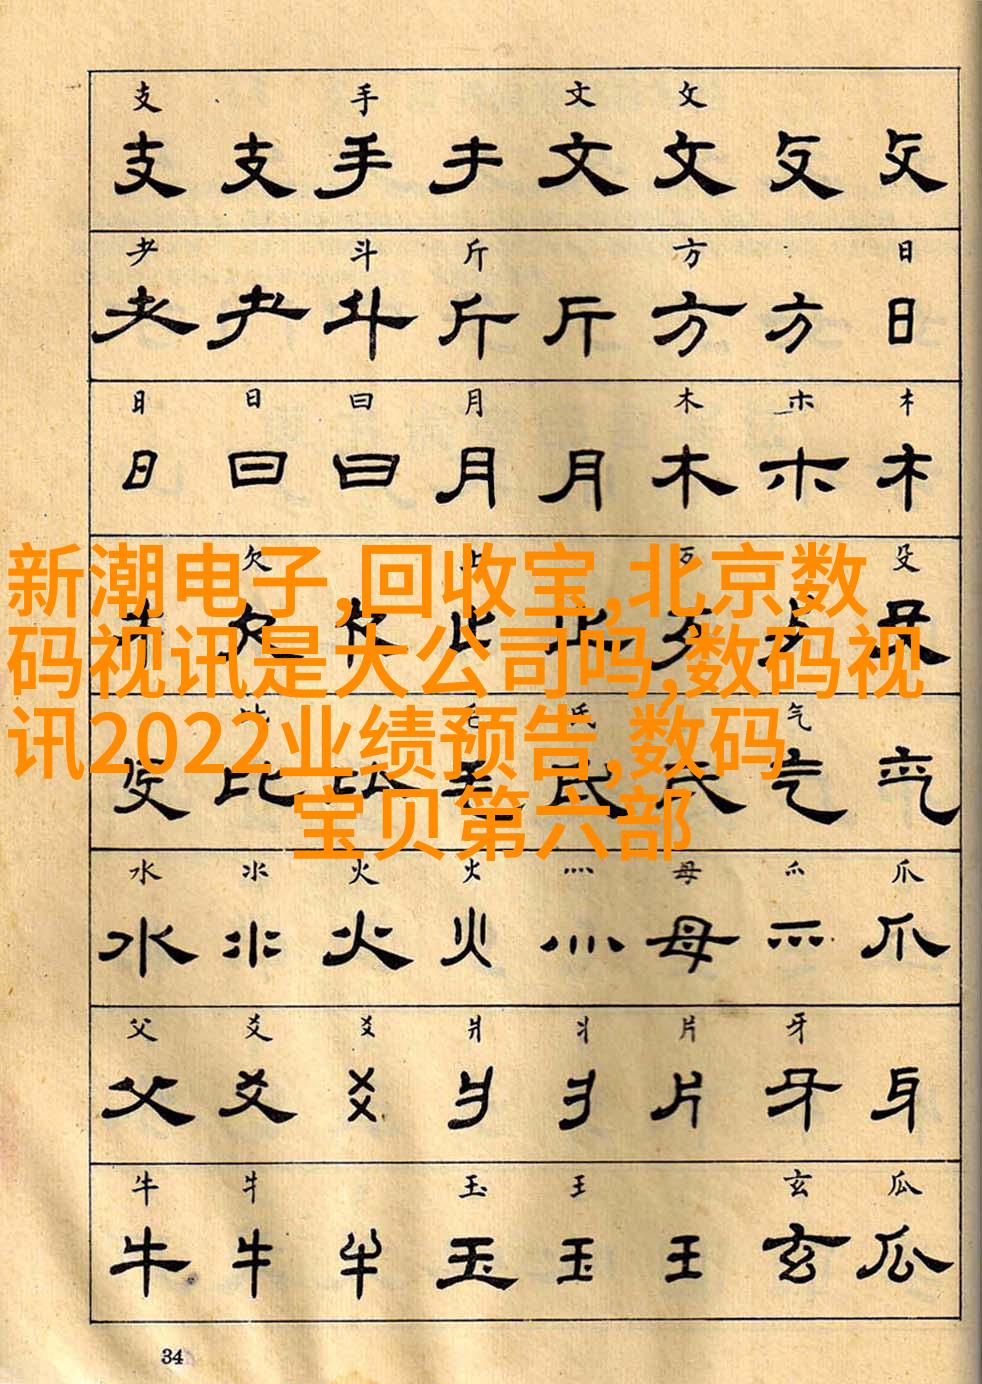 支 手 文 攵
支 支 手 扌 文 攵 攵 攵
耂 斗 斤 方 日
耂 耂 斗 斤 斤 方 方 日
日 日 曰 月 木 朩 木
日 曰 曰 月 月 木 朩 木
欠 止 歹 殳
新潮电子,回收宝,北京数
码视讯是大公司吗,数码视
讯2022业绩预告,数码
宝贝第六部
比 毛 氏 气
水 氺 火 火 灬 母 爫 爪
水 氺 火 火 灬 母 爫 爪
父 爻 爻 爿 丬 片 牙
父 爻 爻 爿 丬 片 牙
牛 牜 玉 王 玄 瓜
牛 牛 玉 玉 王 玄 瓜
34